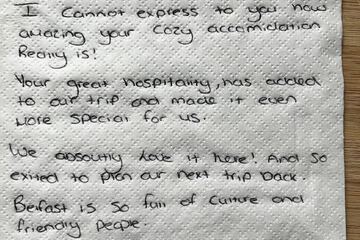 I Cannot express to you how
amazing your cozy accomidation
Really is!
Your great hospitality, has added
to our trip and made it even
more special for us.
We absoutly love it here! And so
exited to plan our next trip back.
Belfast is so full of culture and
friendly people.